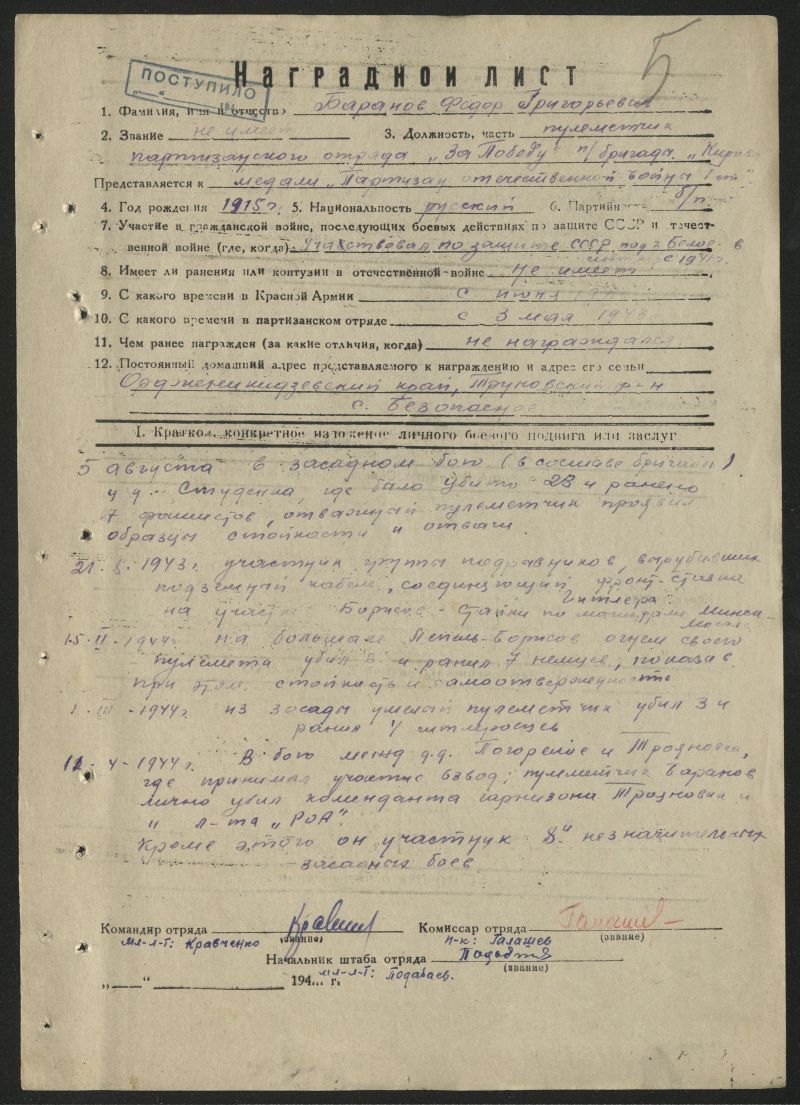 5
Наградной лист
ПОСТУПИЛО
194
1. Фамилия, имя и отчество Баранов Федор Григорьевич
2. Звание не имеет 3. Должность, часть пулеметчик
партизанского отряда „За Победу" п/бригады „Кирова
Представляется к медали „Партизан отечественной войны I ст"
4. Год рождения 1915 г. 5. Национальность русский 6. Партийность б/п
7. Участие в гражданской войне, последующих боевых действиях по защите СССР и отечест-
венной войне (где, когда) Участвовал по защите СССР под г. в
с 1941 г.
8. Имеет ли ранения или контузии в отечественной войне Не имеет
9. С какого времени в Красной Армии с июня
10. С какого времени в партизанском отряде с 3 мая 1943
11. Чем ранее награжден (за какие отличия, когда) не награждался
12. Постоянный домашний адрес представляемого к награждению и адрес его семьи
Орджоникидзевский край, Труновский р-н
с. Безопасное
I. Краткое, конкретное изложение личного боевого подвига или заслуг
5 августа в засадном бою (в составе бригады)
у д. Студенка, где было убито 28 и ранено
7 фашистов, отважный пулеметчик проявил
образцы стойкости и отваги.
21. 8. 1943 г. участник группы подрывников, вырубивших
подземный кабель, соединяющий фронт-ставка
Гитлера
на участке Борисов - по Минск-
Москва
15. II - 1944 г. на большаке Лепель-Борисов огнем своего
пулемета убил 8 и ранил 7 немцев, показав
при этом стойкость и самоотверженность
1. III - 1944 г. из засады умелый пулеметчик убил 3 и
ранил 4 гитлеровцев
12. 4 - 1944 г. В бою между д.д. Погорелое и Трояновка,
где принимал участие взвод, пулеметчик Баранов
лично убил коменданта гарнизона Трояновка и
л-та „РОА".
Кроме этого он участник 8" незначительных
засадных боев.
Командир отряда Комиссар отряда
(звание) (звание)
мл-л-т: Кравченко п-к: Галашев
Начальник штаба отряда
(звание)
„___" 194... г. мл-л-т: Подабаев.